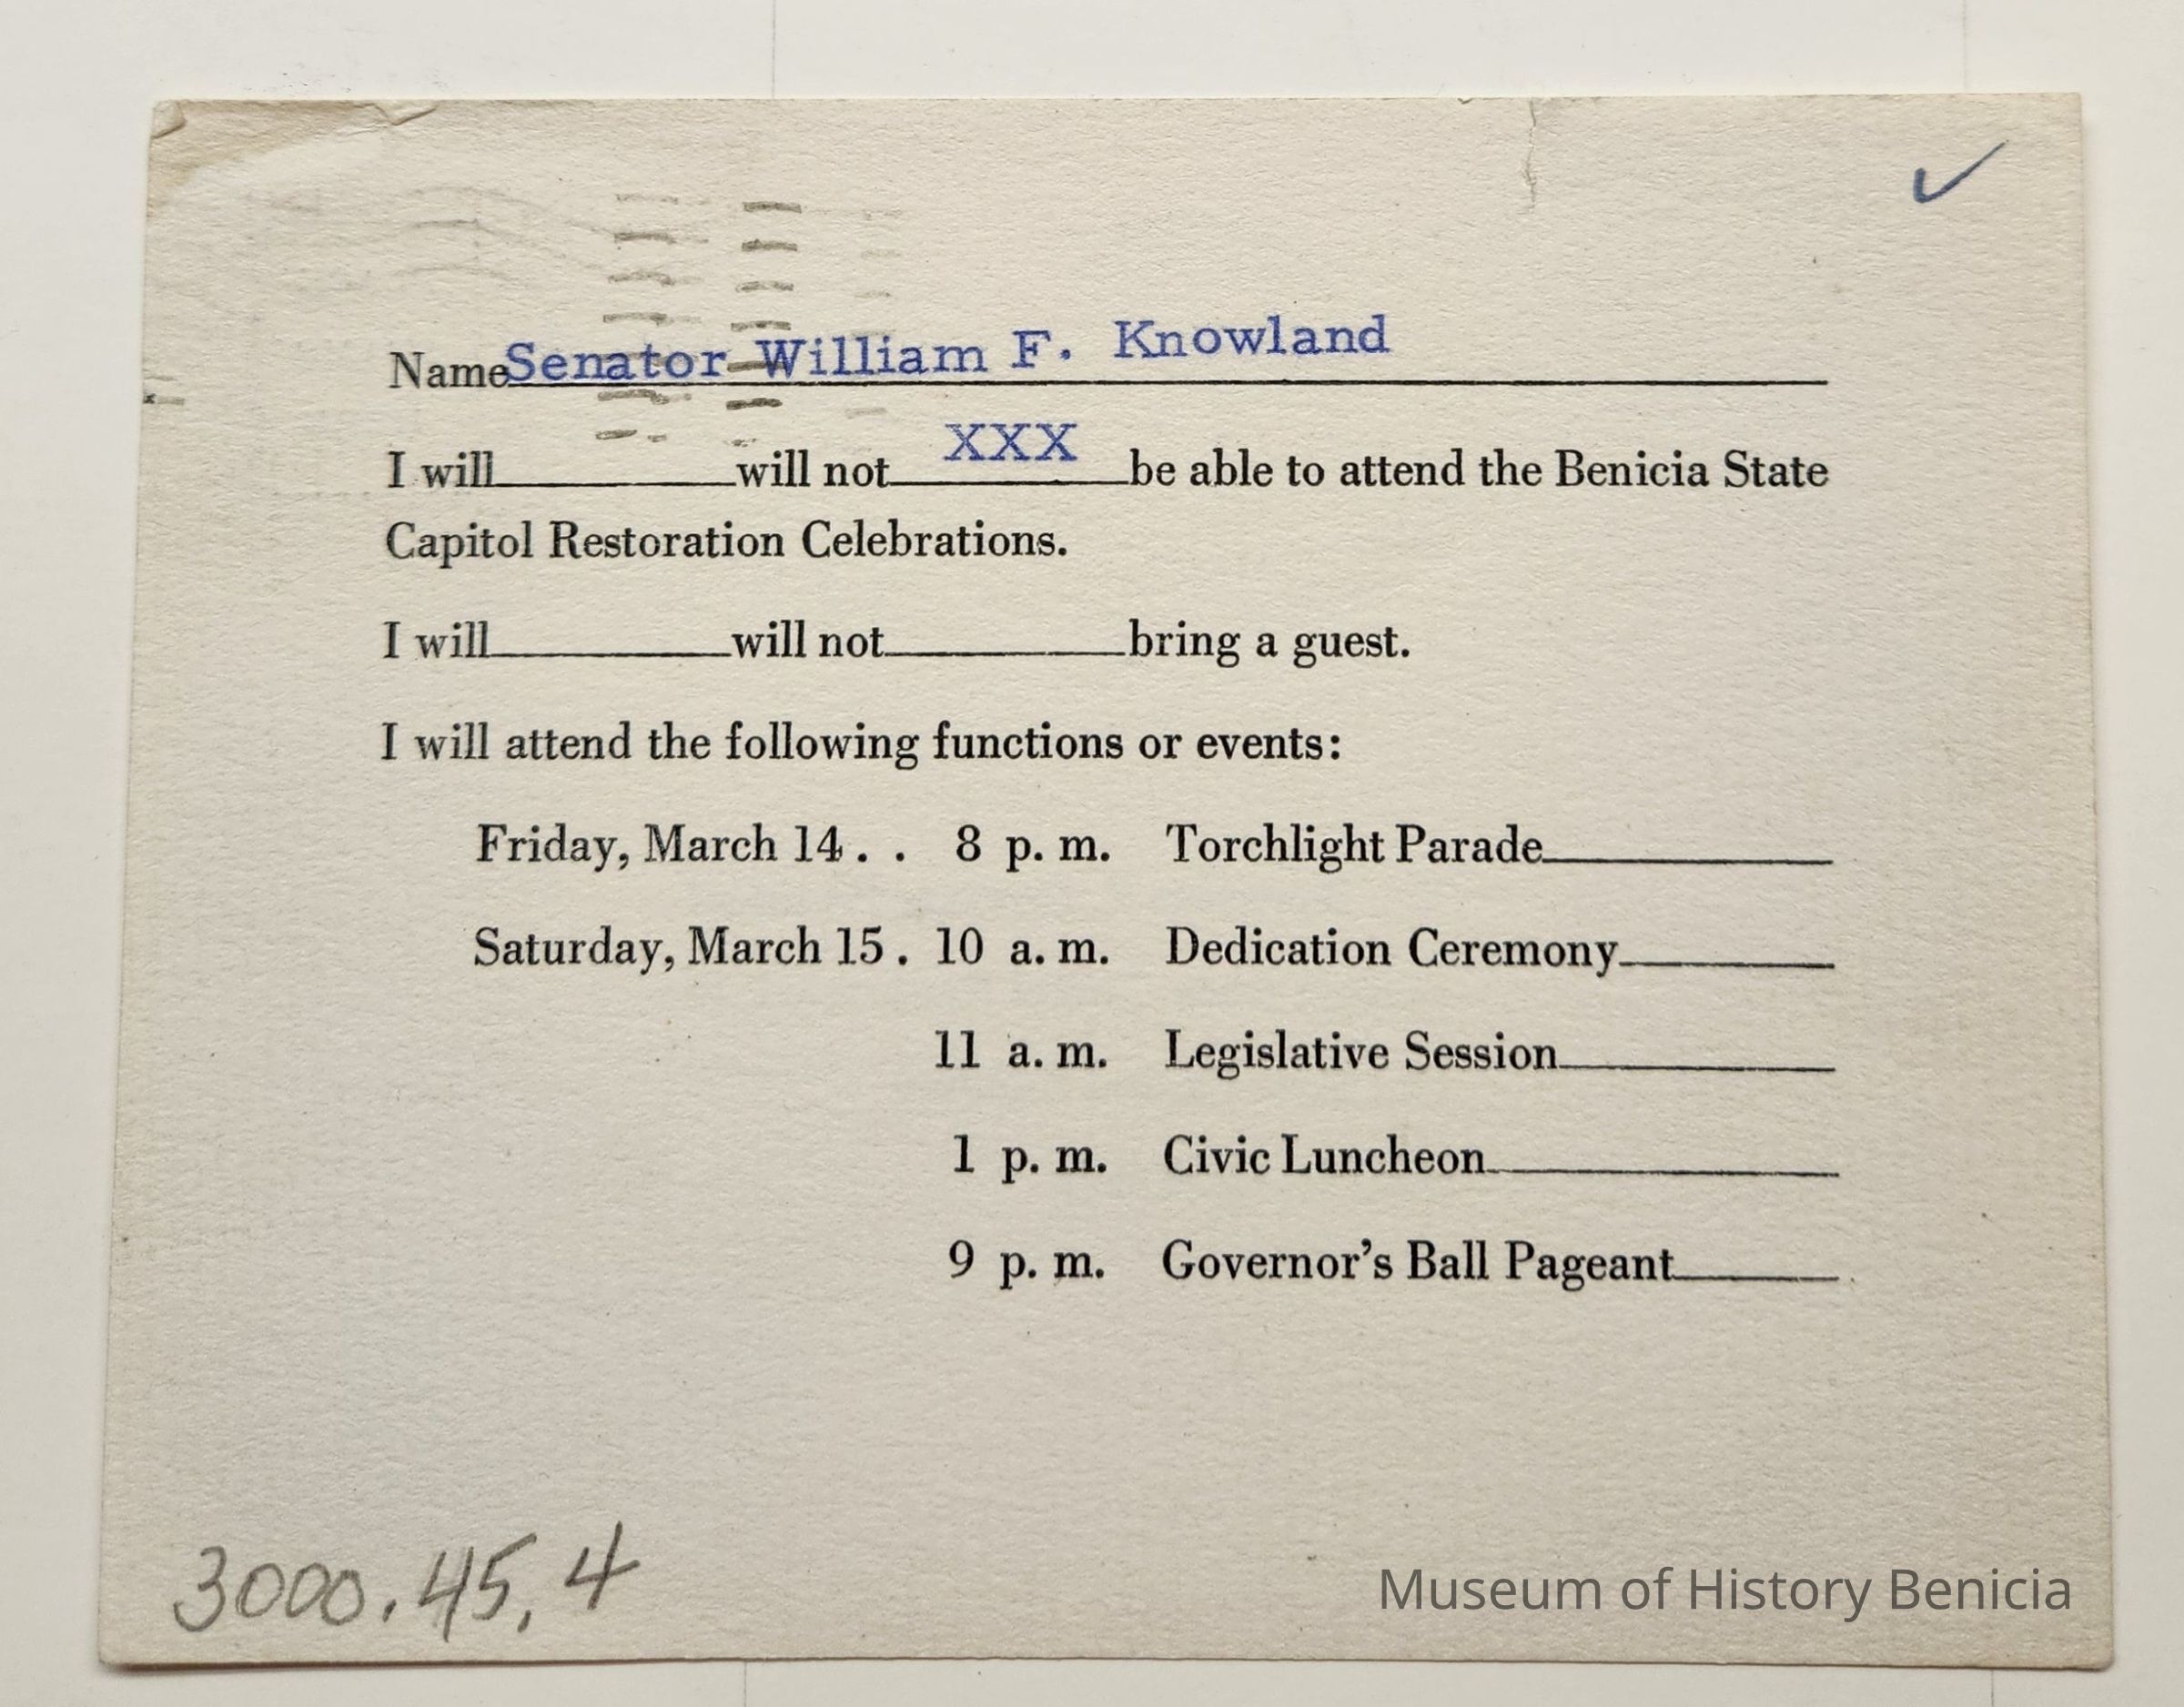 Name Senator William F. Knowland
I will________will not__XXX__be able to attend the Benicia State
Capitol Restoration Celebrations.
I will________will not________bring a guest.
I will attend the following functions or events:
Friday, March 14 . . 8 p. m. Torchlight Parade________
Saturday, March 15 . 10 a. m. Dedication Ceremony________
11 a. m. Legislative Session________
1 p. m. Civic Luncheon________
9 p. m. Governor's Ball Pageant________
3000.45,4
Museum of History Benicia